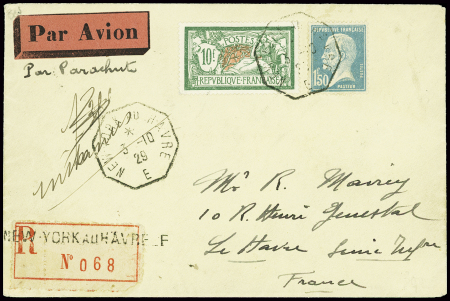 Par Avion
Par Parachute
POSTES
10F
RÉPUBLIQUE FRANÇAISE
1F50
PASTEUR
NEW-YORK AU HAVRE
*
3-10
29
E
NEW-YORK AU HAVRE E
R
N° 068
Mr R.
10 R. Henri Genestal
Le Havre Seine
France